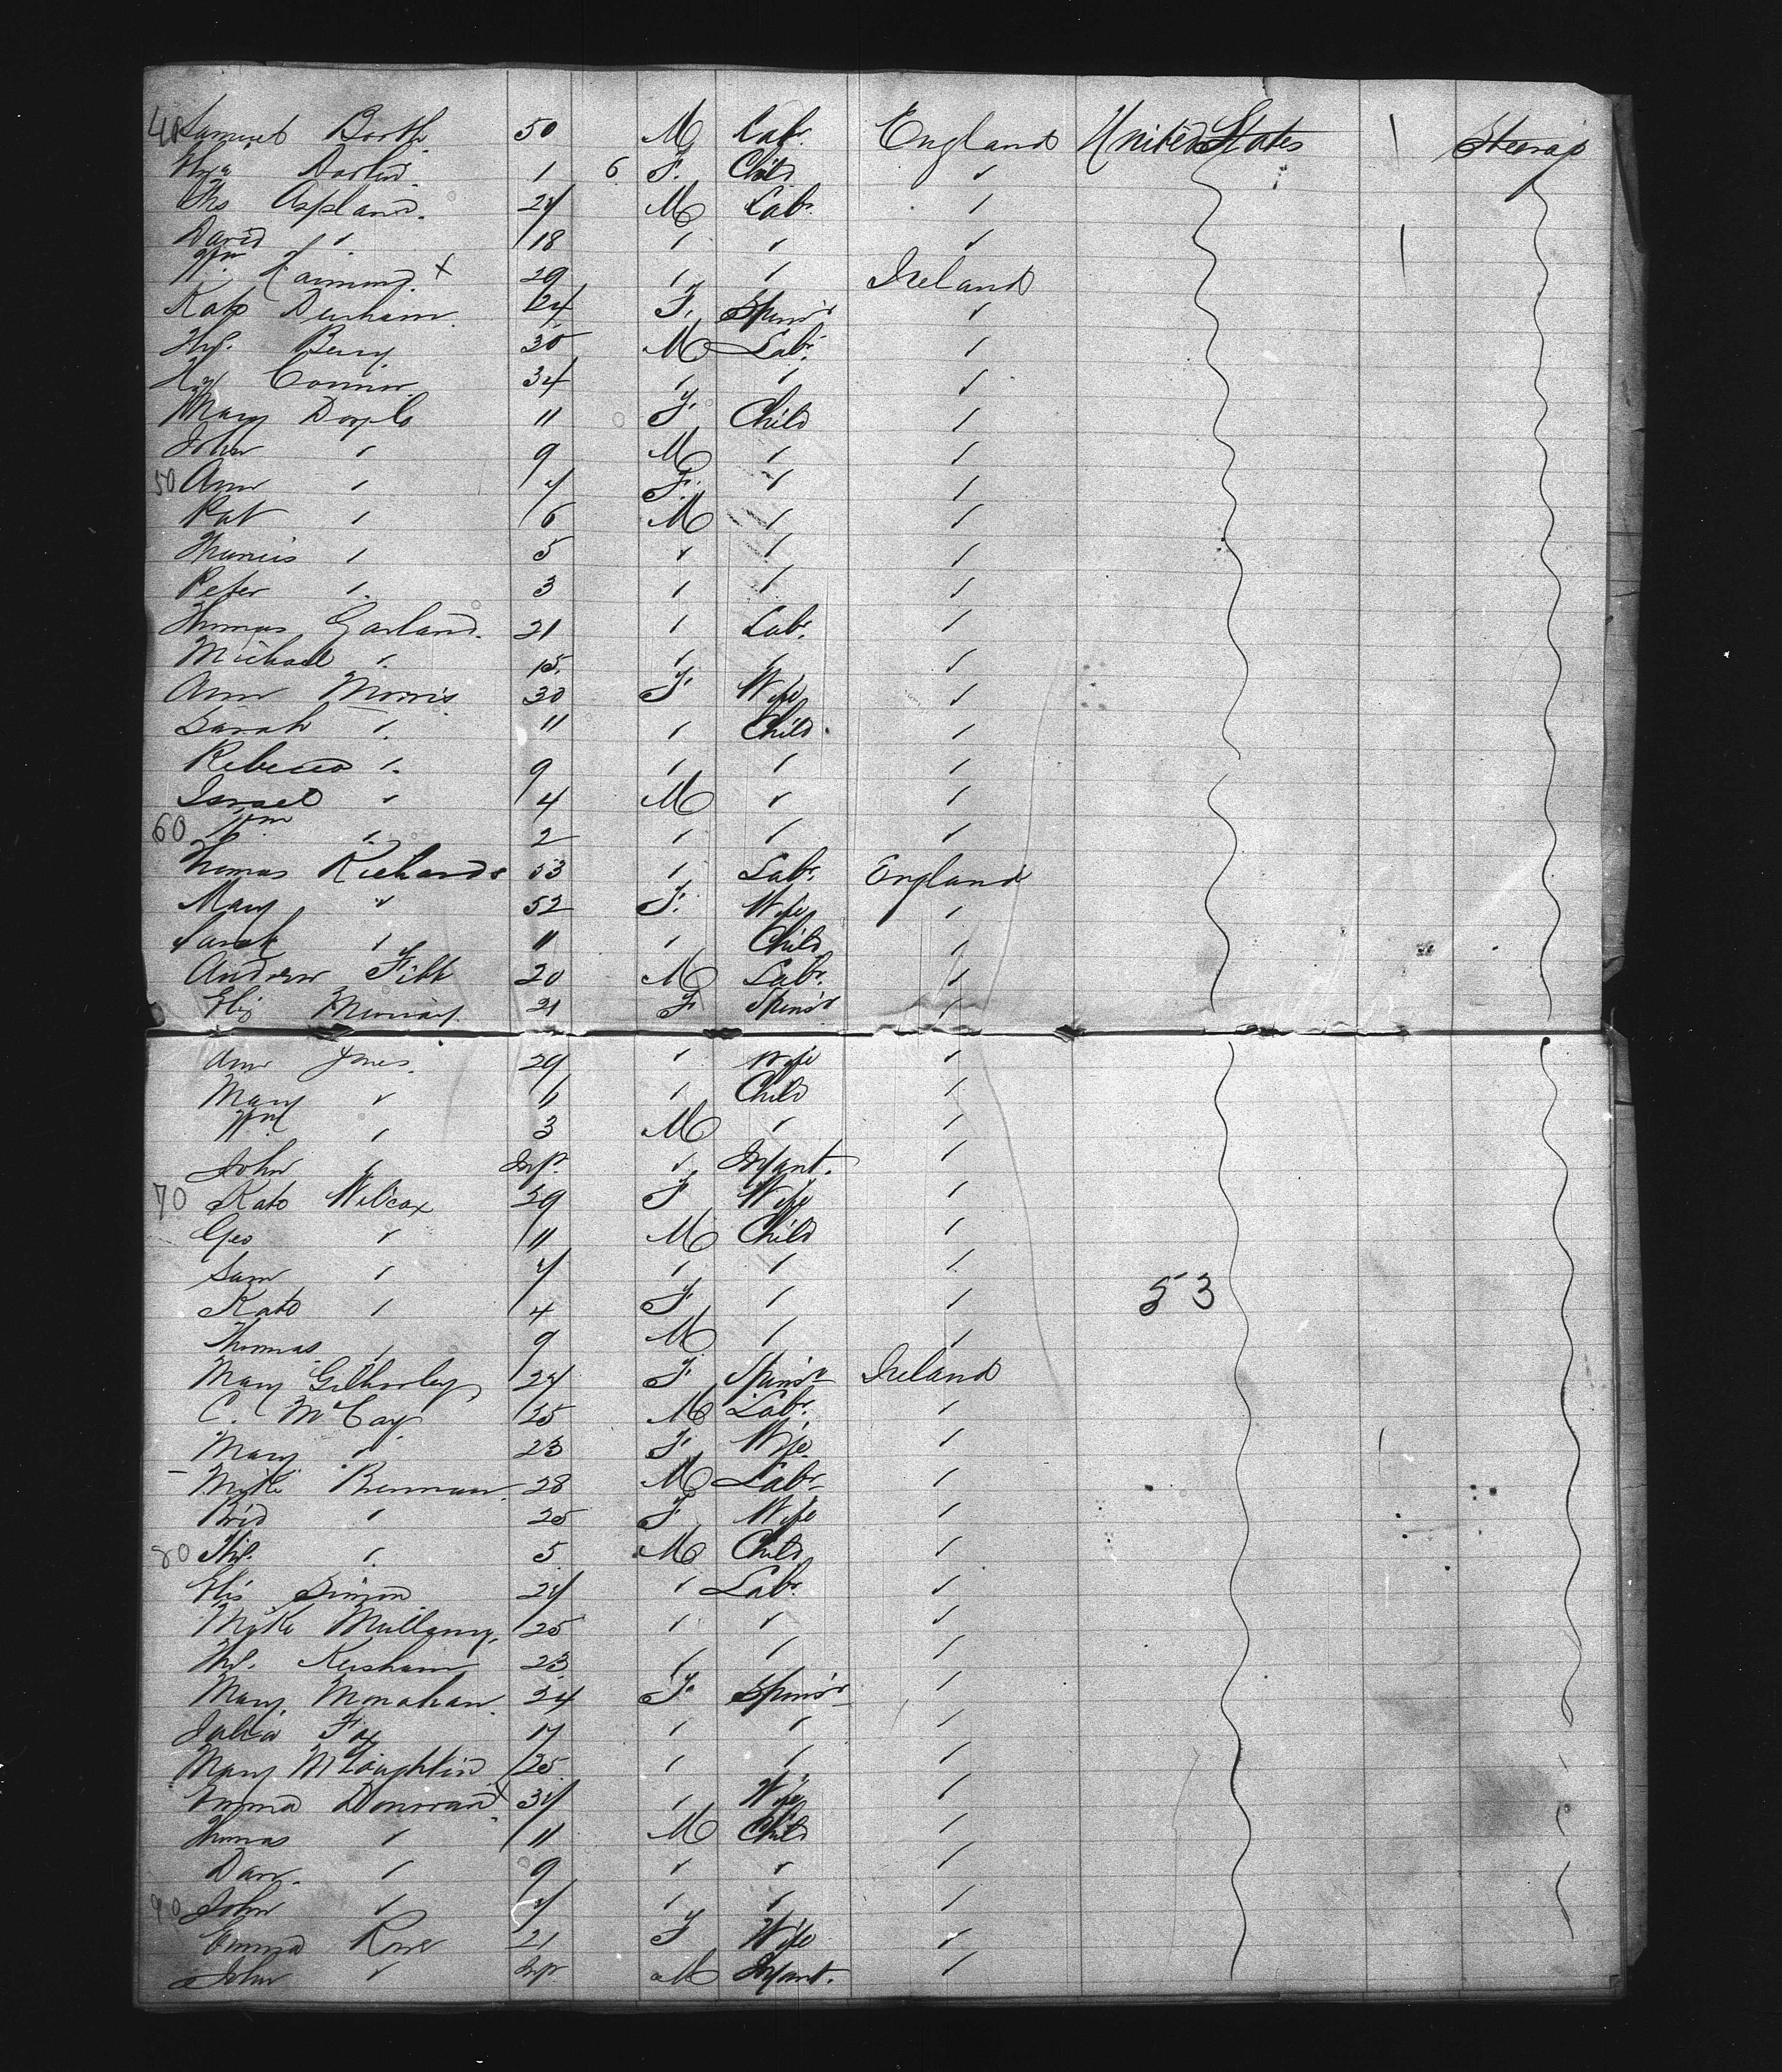 40 Samuel Booth 50 M Labr. England United States / Steerage
1 6 F. Child ✓
Ths Aspland. 27 M Labr. /
David / 18 / / ✓
Wm. + 29 / / Ireland
Kate Denham. 24 F. Spinsr ✓
Berry 30 M Labr. /
Hy Connor 34 / / ✓
Mary Doyle 11 F. Child /
John / 9 M / /
50 Ann / 7 F. / /
Pat / 6 M / /
Francis / 5 / / /
Peter / 3 / / /
Thomas Garland. 21 / Labr. /
Michael / 15 / / /
Ann Morris 30 F. Wife ✓
Sarah /. 11 / Child. /
Rebecca /. 9 / / /
Israel / 4 M / /
60 Wm / 2 / / /
Thomas Richards 53 / Labr. England
Mary / 52 F. Wife /
Sarah / 11 / Child /
Andrew Fitt 20 M Labr. /
Eliz Murray. 21 F Spinsr /
Ann Jones. 29 / Wife ✓
Mary / 6 / Child /
Wm / 3 M / /
John / Inf. / Infant. /
70 Kate Wilcox 29 F Wife /
Geo / 11 M Child /
Sam / 7 / / /
Kate / 4 F / / 53
Thomas / 9 M / /
Mary 24 F Spinsr Ireland
C. McCay 25 M Labr. /
Mary / 23 F. Wife /
Mike Brennan 28 M Labr /
Brid / 25 F Wife /
80 / 5 M Child /
Simon 27 / Labr. ✓
Mike Mullany. 25 / / ✓
23 / / /
Mary Monahan. 24 F. Spinsr /
Julia Fox 17 / / /
Mary McLoughlin 25 / / /
Emma Donovan 37 / Wife /
Thomas / 11 M Child /
Dan. / 9 / / /
90 John / 7 / / /
Emma Rowe 21 F Wife ✓
John / Inf M Infant. ✓